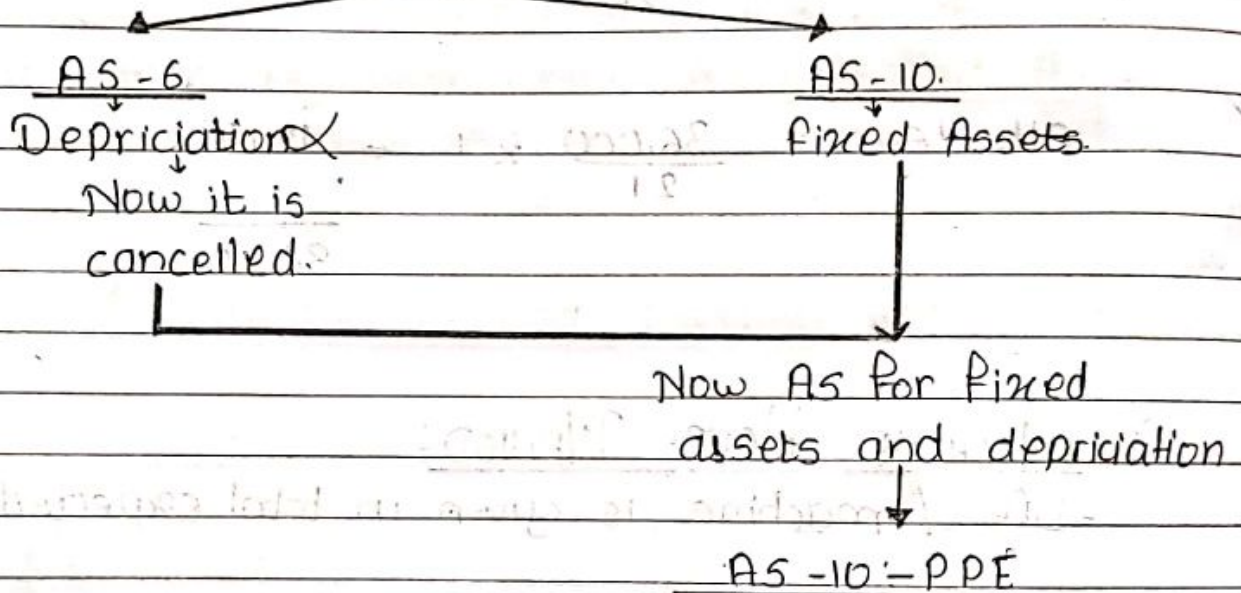 AS-6.
Depriciation X
Now it is
cancelled.
AS-10.
Fixed Assets.
Now As for fixed
assets and depriciation
AS-10:- PPE